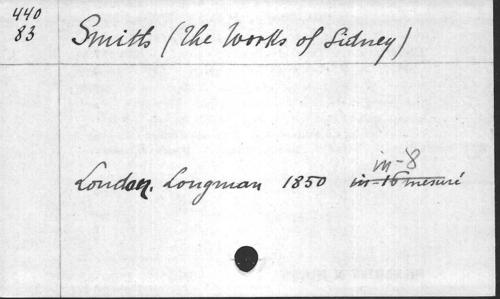 440
83
Smith (The Works of Sidney)
in-8
London, Longman 1850 in-16 mesuré